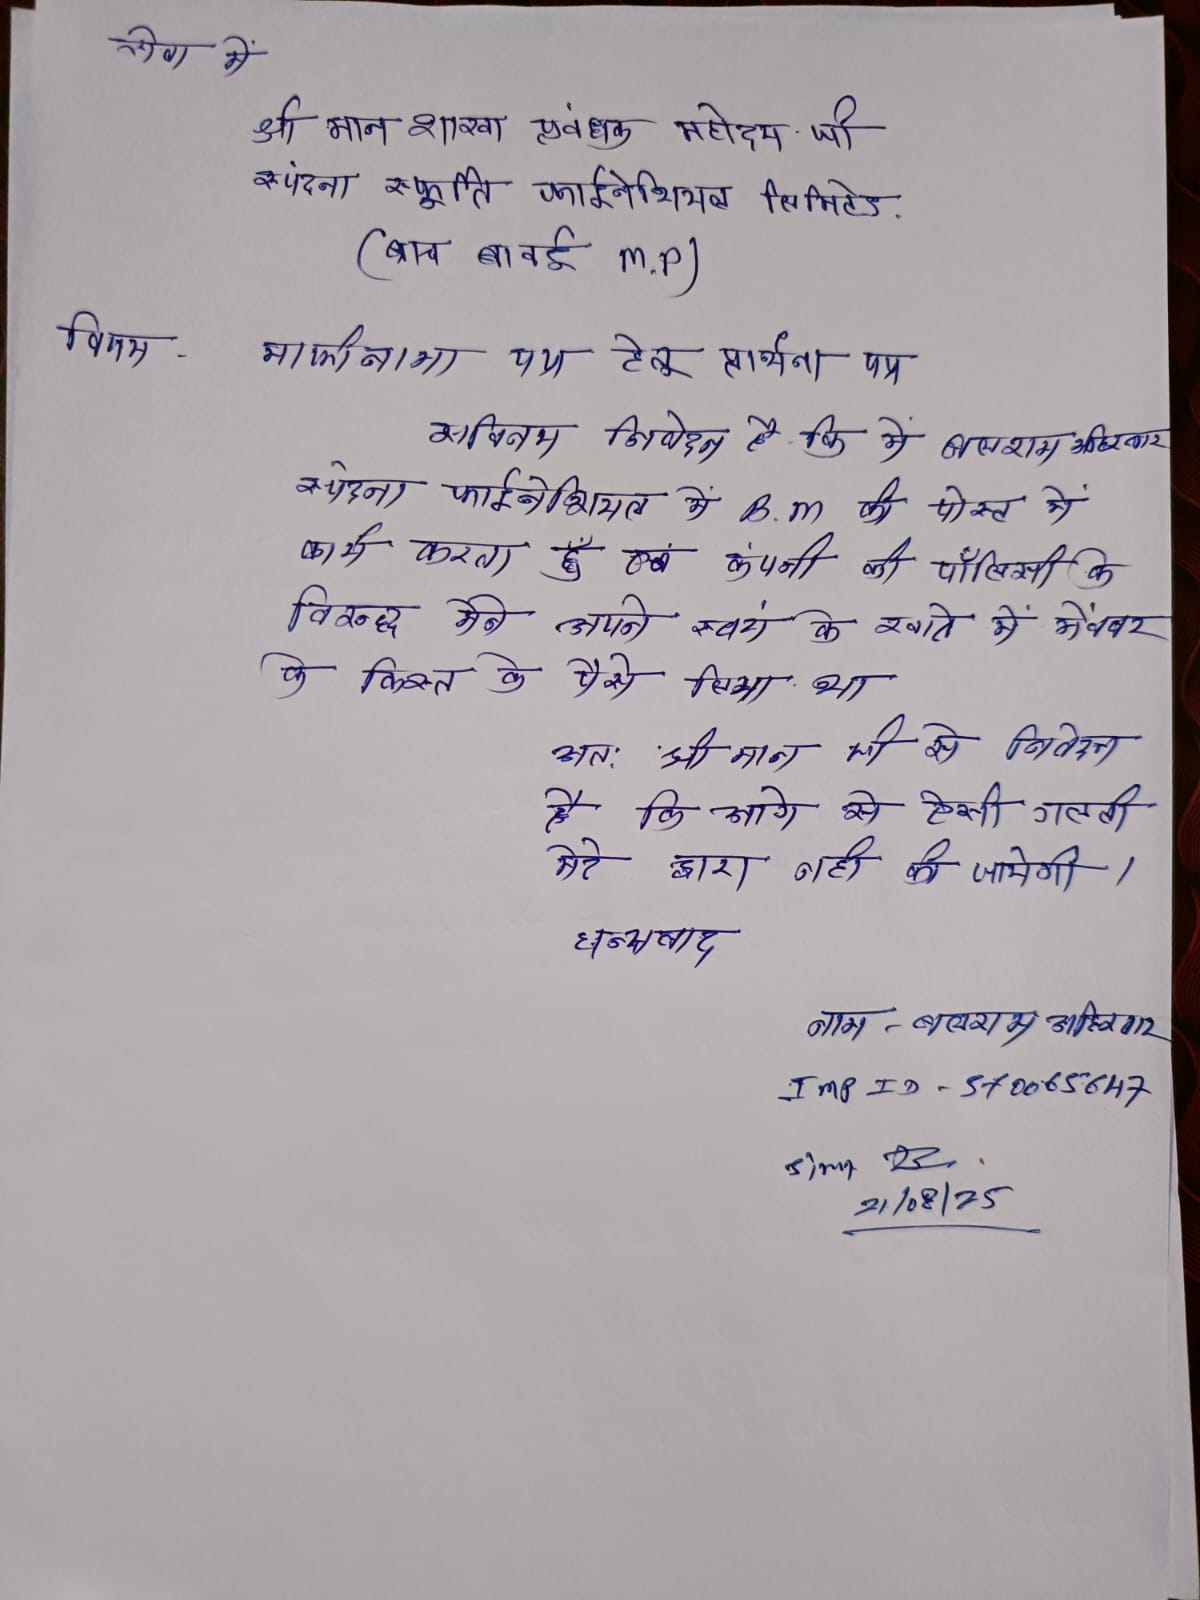 सेवा में
श्री मान शाखा प्रबंधक महोदय जी
स्पंदना स्फूर्ति फाईनेंशियल लिमिटेड.
(ब्रांच बावई M.P)
विषय - माफीनामा पत्र हेतू प्रार्थना पत्र
सविनय निवेदन है कि में बलराम अहिरवार
स्पंदना फाईनेंशियल में B.M की पोस्ट में
कार्य करता हूँ एवं कंपनी की पॉलिसी के
विरुद्ध मैंने अपने स्वयं के खाते में मेंबर
के किस्त के पैसे लिया था
अतः श्री मान जी से निवेदन
है कि आगे से ऐसी गलती
मेरे द्वारा नही की जायेगी ।
धन्यवाद
नाम - बलराम अहिरवार
Imp ID - 570065647
21/08/25